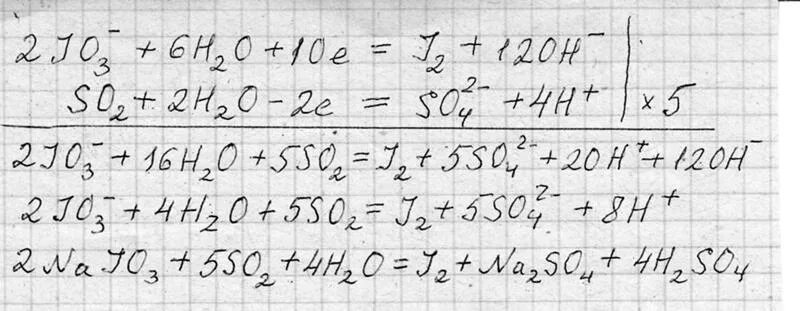 2JO₃⁻ + 6H₂O + 10e = J₂ + 12OH⁻
SO₂ + 2H₂O - 2e = SO₄²⁻ + 4H⁺ | × 5
2JO₃⁻ + 16H₂O + 5SO₂ = J₂ + 5SO₄²⁻ + 20H⁺ + 12OH⁻
2JO₃⁻ + 4H₂O + 5SO₂ = J₂ + 5SO₄²⁻ + 8H⁺
2NaJO₃ + 5SO₂ + 4H₂O = J₂ + Na₂SO₄ + 4H₂SO₄